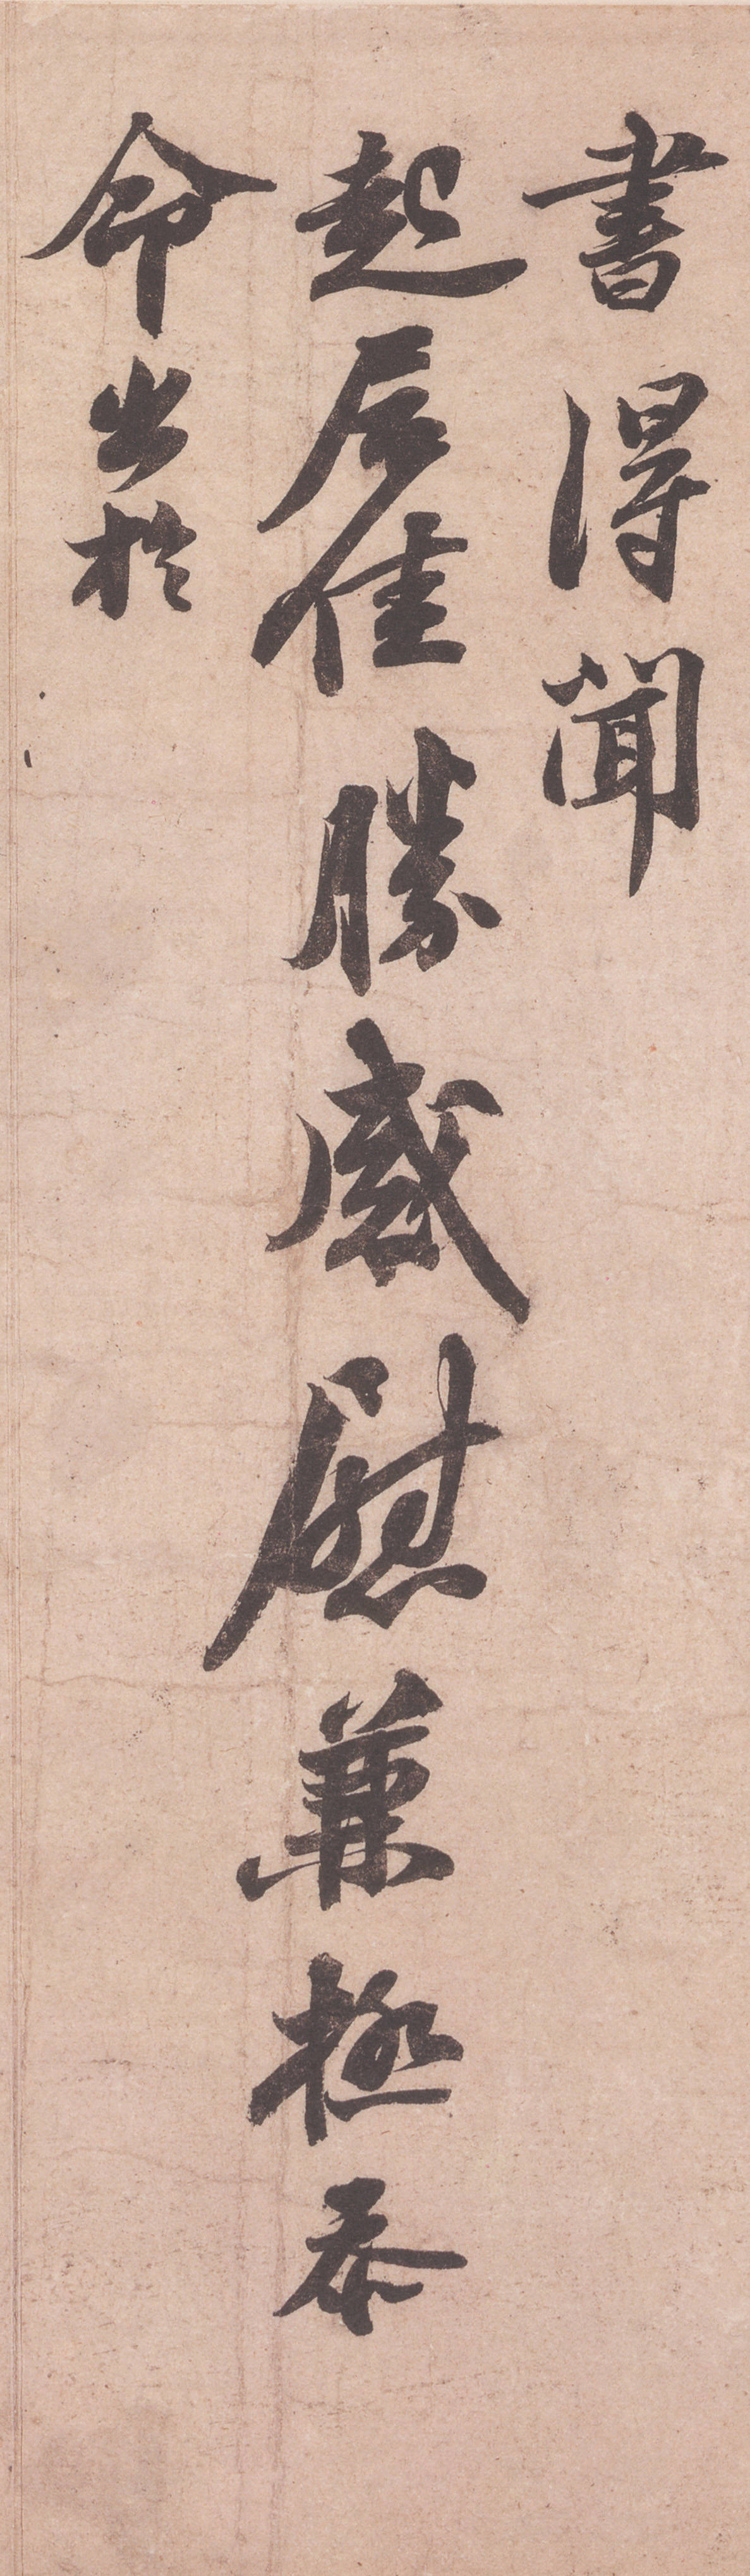 書得聞
起居佳勝感慰兼極忝
命出於